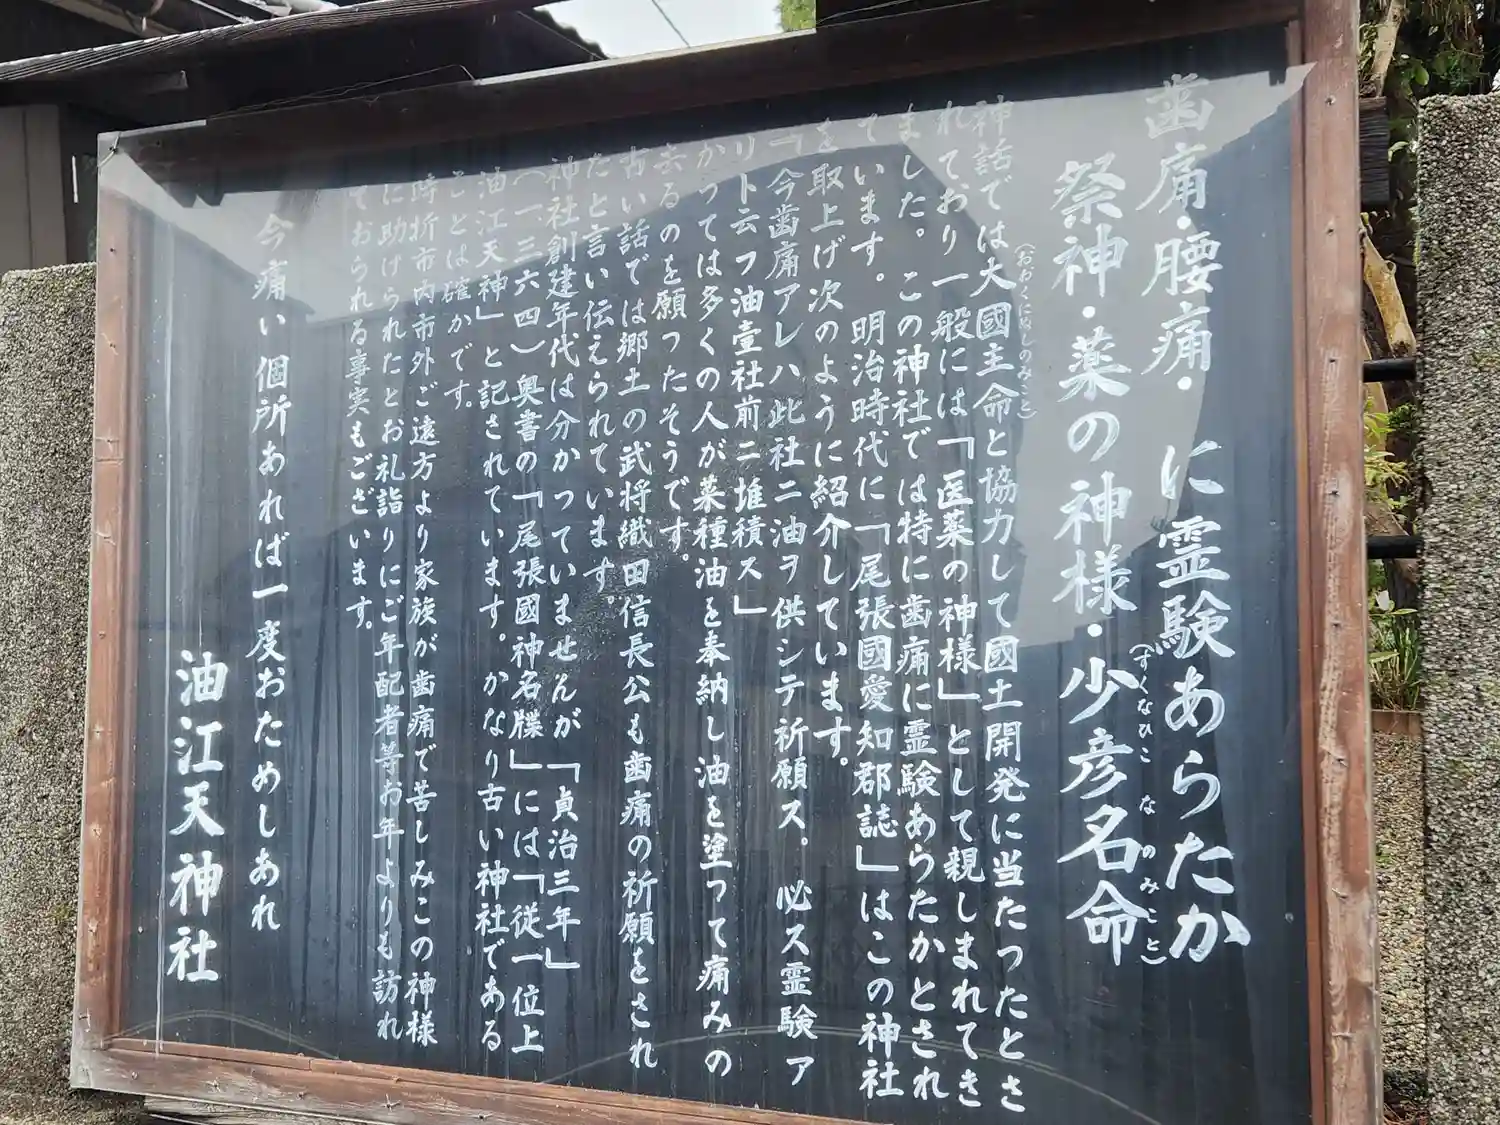 歯痛・腰痛・に霊験あらたか
祭神・薬の神様・少彦名命
(すくなひこ なのみこと)
神話では大國主命と協力して國土開発に当たったとさ
(おおくにぬしのみこと)
れており一般には「医薬の神様」として親しまれてき
ました。この神社では特に歯痛に霊験あらたかとされ
ています。明治時代に「尾張國愛知郡誌」はこの神社
を取上げ次のように紹介しています。
「今歯痛アレハ此社ニ油ヲ供シテ祈願ス。必ス霊験ア
リト云フ油壹社前ニ堆積ス」
かつては多くの人が菜種油を奉納し油を塗って痛みの
去るのを願ったそうです。
古い話では郷土の武将織田信長公も歯痛の祈願をされ
たと言い伝えられています。
神社創建年代は分かっていませんが「貞治三年」
(一三六四)奥書の「尾張國神名牒」には「従一位上
油江天神」と記されています。かなり古い神社である
ことは確かです。
時折市内市外ご遠方より家族が歯痛で苦しみこの神様
に助けられたとお礼詣りにご年配者等お年よりも訪れ
ておられる事実もございます。
今痛い個所あれば一度おためしあれ
油江天神社